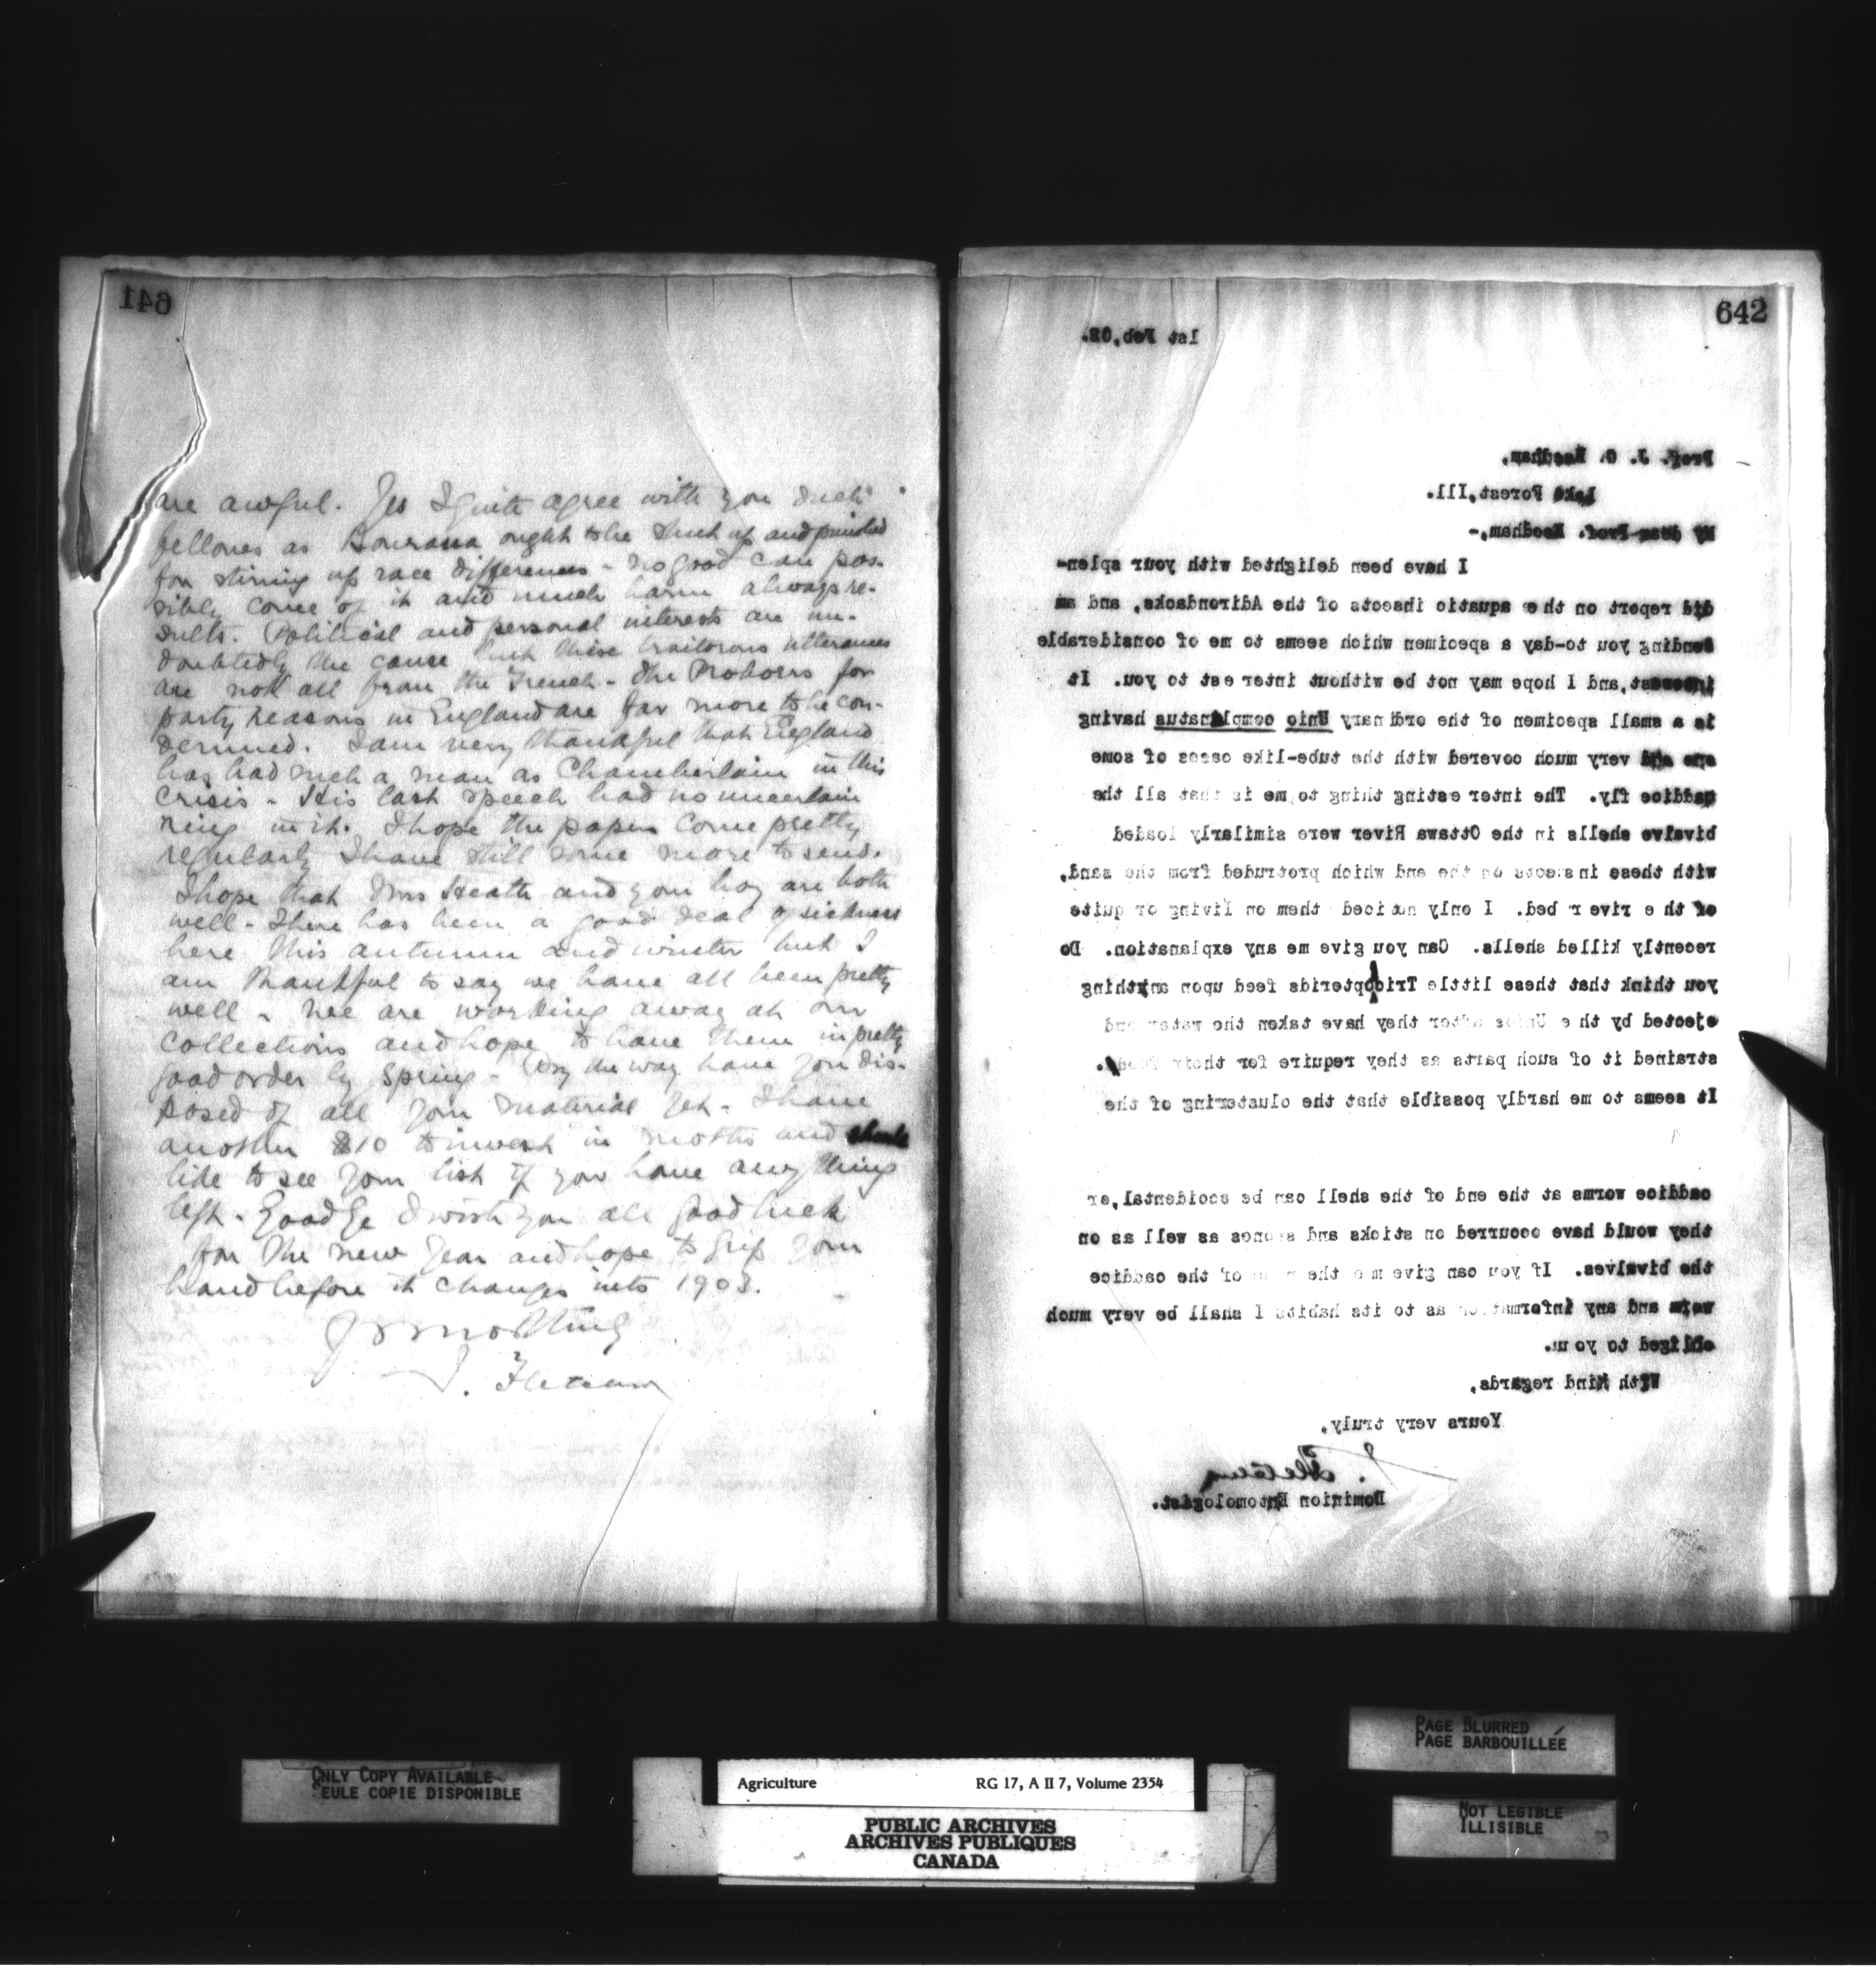 641
are awful. Yes I quite agree with you such
fellows as Bourassa ought to be shut up and punished
for stirring up race differences - no good can pos-
sibly come of it and much harm always re-
sults. Political and personal interests are un-
doubtedly the cause but these traitorous utterances
are not all from the French - the Proboers for
party reasons in England are far more to be con-
demned. I am very thankful that England
has had such a man as Chamberlain in this
crisis - His last speech had no uncertain
ring in it. I hope the papers come pretty
regularly I have still some more to send.
I hope that Mrs Heath and your boy are both
well - There has been a good deal of sickness
here this autumn and winter but I
am thankful to say we have all been pretty
well - We are working away at our
collections and hope to have them in pretty
good order by spring - By the way have you dis-
posed of all your material yet - I have
another $10 to invest in moths and should
like to see your list if you have anything
left - Goodbye I wish you all good luck
for the new year and hope to grip your
hand before it changes into 1903.
J. Fletcher
642
1st Feb, 02.
Prof. J. G. Needham,
Lake Forest, Ill.
My dear Prof. Needham,-
I have been delighted with your splen-
did report on the aquatic insects of the Adirondacks, and am
sending you to-day a specimen which seems to me of considerable
interest, and I hope may not be without interest to you. It
is a small specimen of the ordinary Unio complanatus having
one end very much covered with the tube-like cases of some
caddice fly. The interesting thing to me is that all the
bivalve shells in the Ottawa River were similarly loaded
with these insects on the end which protruded from the sand,
of the river bed. I only noticed them on living or quite
recently killed shells. Can you give me any explanation. Do
you think that these little Tricopterids feed upon anything
ejected by the Unios after they have taken the water and
strained it of such parts as they require for their food.
It seems to me hardly possible that the clustering of the
caddice worms at the end of the shell can be accidental, or
they would have occurred on sticks and stones as well as on
the bivalves. If you can give me the name of the caddice
worm and any information as to its habits I shall be very much
obliged to you.
With kind regards,
Yours very truly,
J. Fletcher
Dominion Entomologist.
ONLY COPY AVAILABLE
SEULE COPIE DISPONIBLE
Agriculture RG 17, A II 7, Volume 2354
PUBLIC ARCHIVES
ARCHIVES PUBLIQUES
CANADA
PAGE BLURRED
PAGE BARBOUILLÉE
NOT LEGIBLE
ILLISIBLE